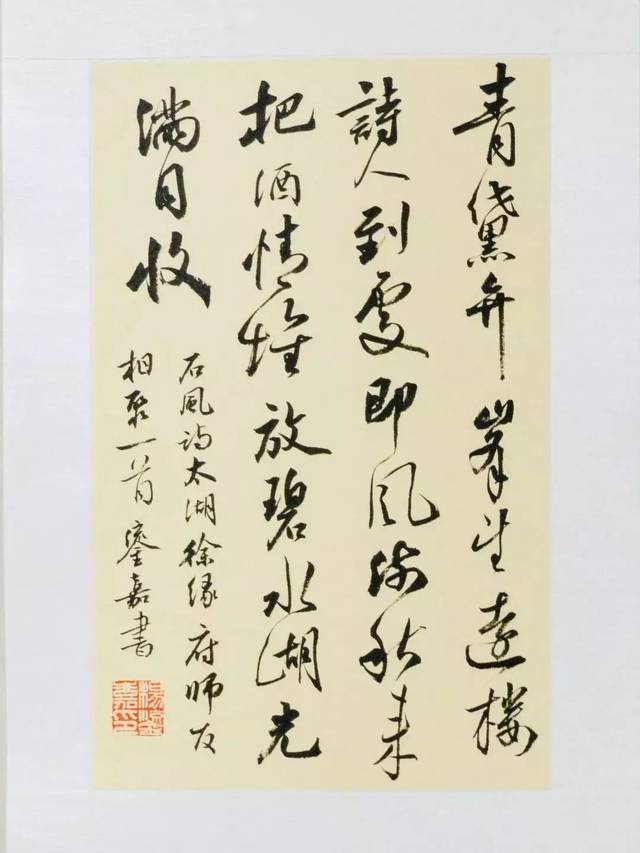 青黛弁峯遠樓
詩人到處即風流秋來
把酒情懷放碧水湖光
滿目收
石風詩太湖徐緣府師友
相聚一首鎏嘉書